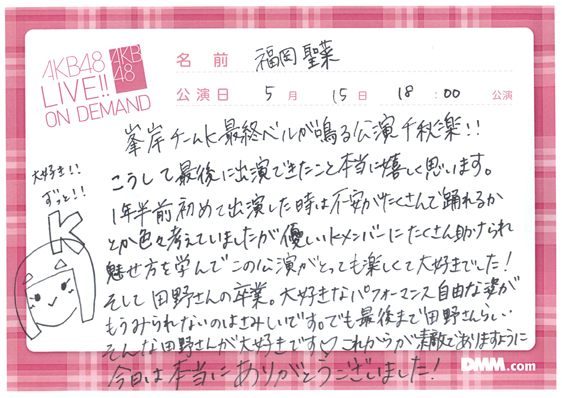 AKB48
LIVE!!
ON DEMAND
AKB
48
名前 福岡聖菜
公演日 5月 15日 18:00 公演
峯岸チームK最終ベルが鳴る公演千秋楽!!
大好き!!
ずっと!!
K
こうして最後に出演できたこと本当に嬉しく思います。
1年半前初めて出演した時は不安がたくさんで踊れるか
とか色々考えていましたが優しいKメンバーにたくさん助けられ
魅せ方を学んでこの公演がとっても楽しくて大好きでした!
そして田野さんの卒業。大好きなパフォーマンス自由な姿が
もうみられないのはさみしいです。でも最後まで田野さんらしい
そんな田野さんが大好きです♡これからが素敵でありますように
今日は本当にありがとうございました!
DMM.com